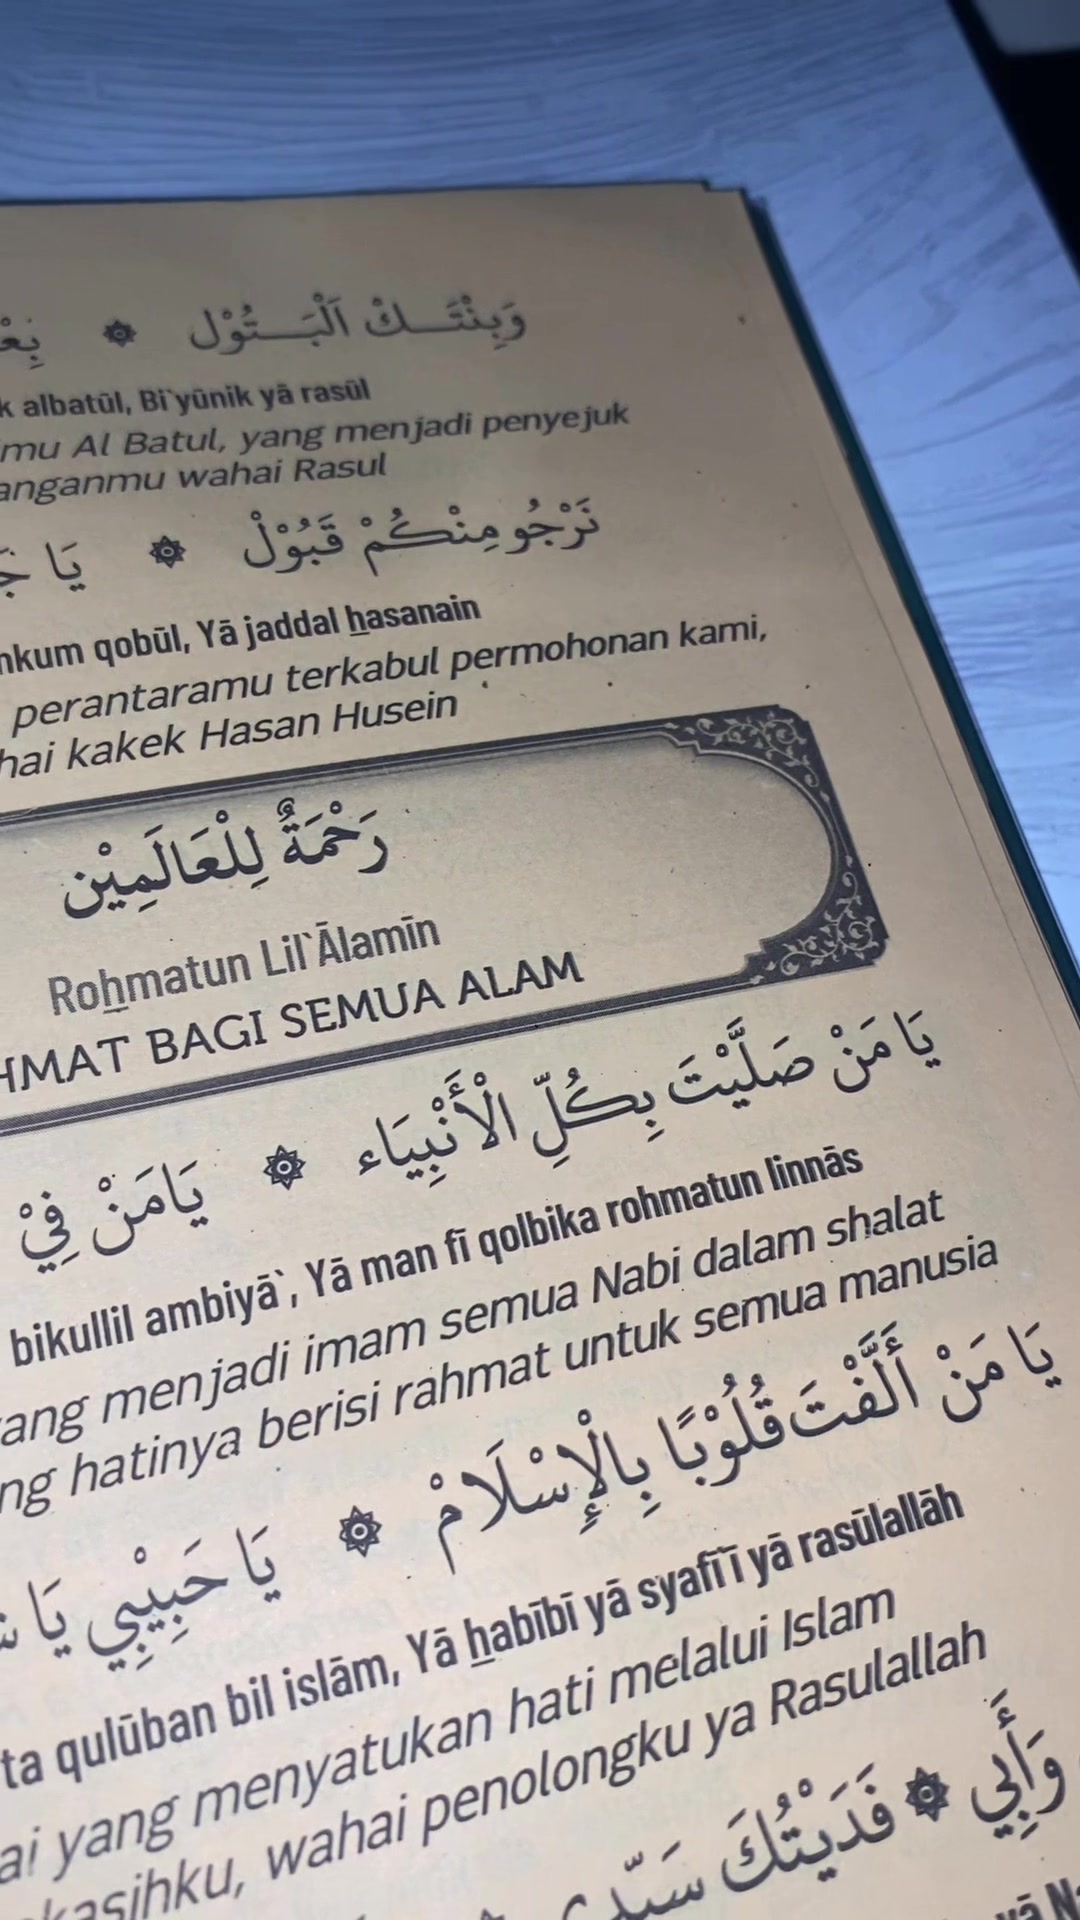 وَبِنْتَـــكْ اَلْبَـــتُوْل ۞
k albatūl, Bi`yūnik yā rasūl
mu Al Batul, yang menjadi penyejuk
anganmu wahai Rasul
نَرْجُو مِنْكُمْ قَبُوْلْ ۞ يَا
nkum qobūl, Yā jaddal hasanain
perantaramu terkabul permohonan kami,
hai kakek Hasan Husein
رَحْمَةٌ لِلْعَالَمِيْن
Rohmatun Lil`Ālamīn
HMAT BAGI SEMUA ALAM
يَا مَنْ صَلَّيْتَ بِكُلِّ الْأَنْبِيَاء ۞ يَامَنْ فِيْ
bikullil ambiyā`, Yā man fī qolbika rohmatun linnās
ang menjadi imam semua Nabi dalam shalat
ng hatinya berisi rahmat untuk semua manusia
يَا مَنْ أَلَّفْتَ قُلُوْبًا بِالْإِسْلَامْ ۞ يَا حَبِيْبِي يَا
ta qulūban bil islām, Yā habībī yā syafī`ī yā rasūlallāh
ai yang menyatukan hati melalui Islam
kasihku, wahai penolongku ya Rasulallah
وَأَبِي ۞ فَدَيْتُكَ سَيِّدِي
yā